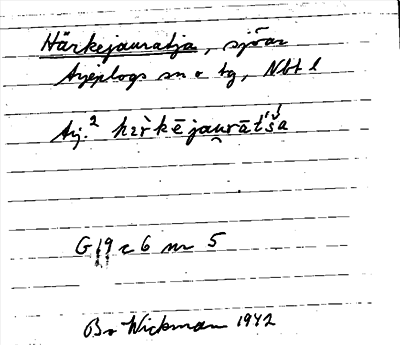 Härkejauratja, sjöar
Arjeplogs sn o tg, Nbt l
Arj.² hɪr̀kējau̯rātʹšʹa
G 19 c 6 nr 5
Bo Wickman 1942